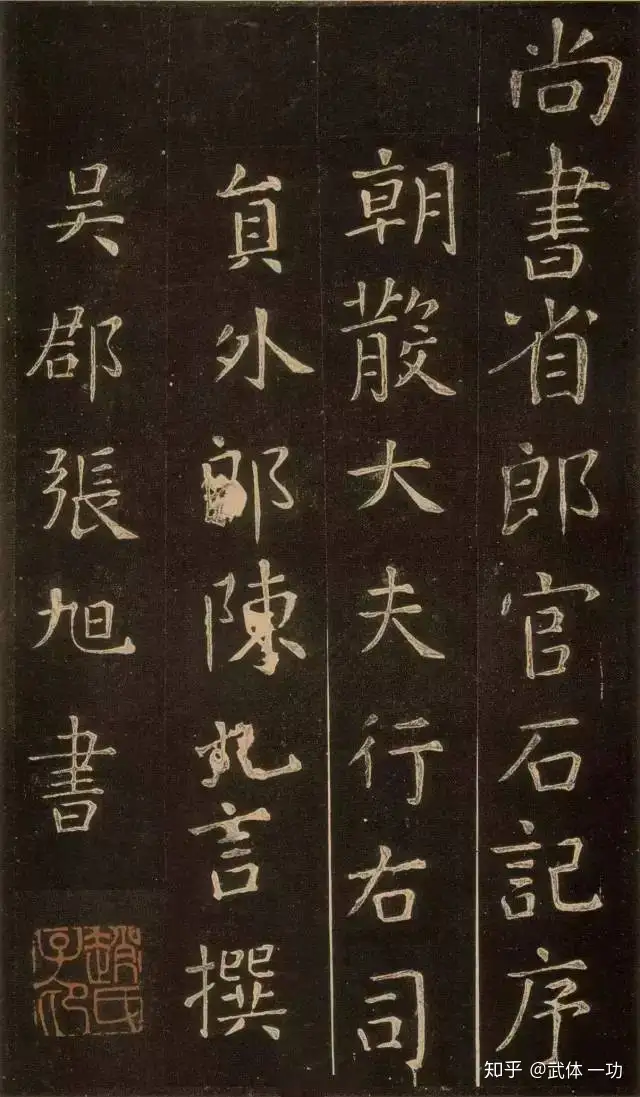 尚書省郎官石記序
朝散大夫行右司
員外郎陳九言撰
吳郡張旭書
趙氏子印
知乎 @武体一功